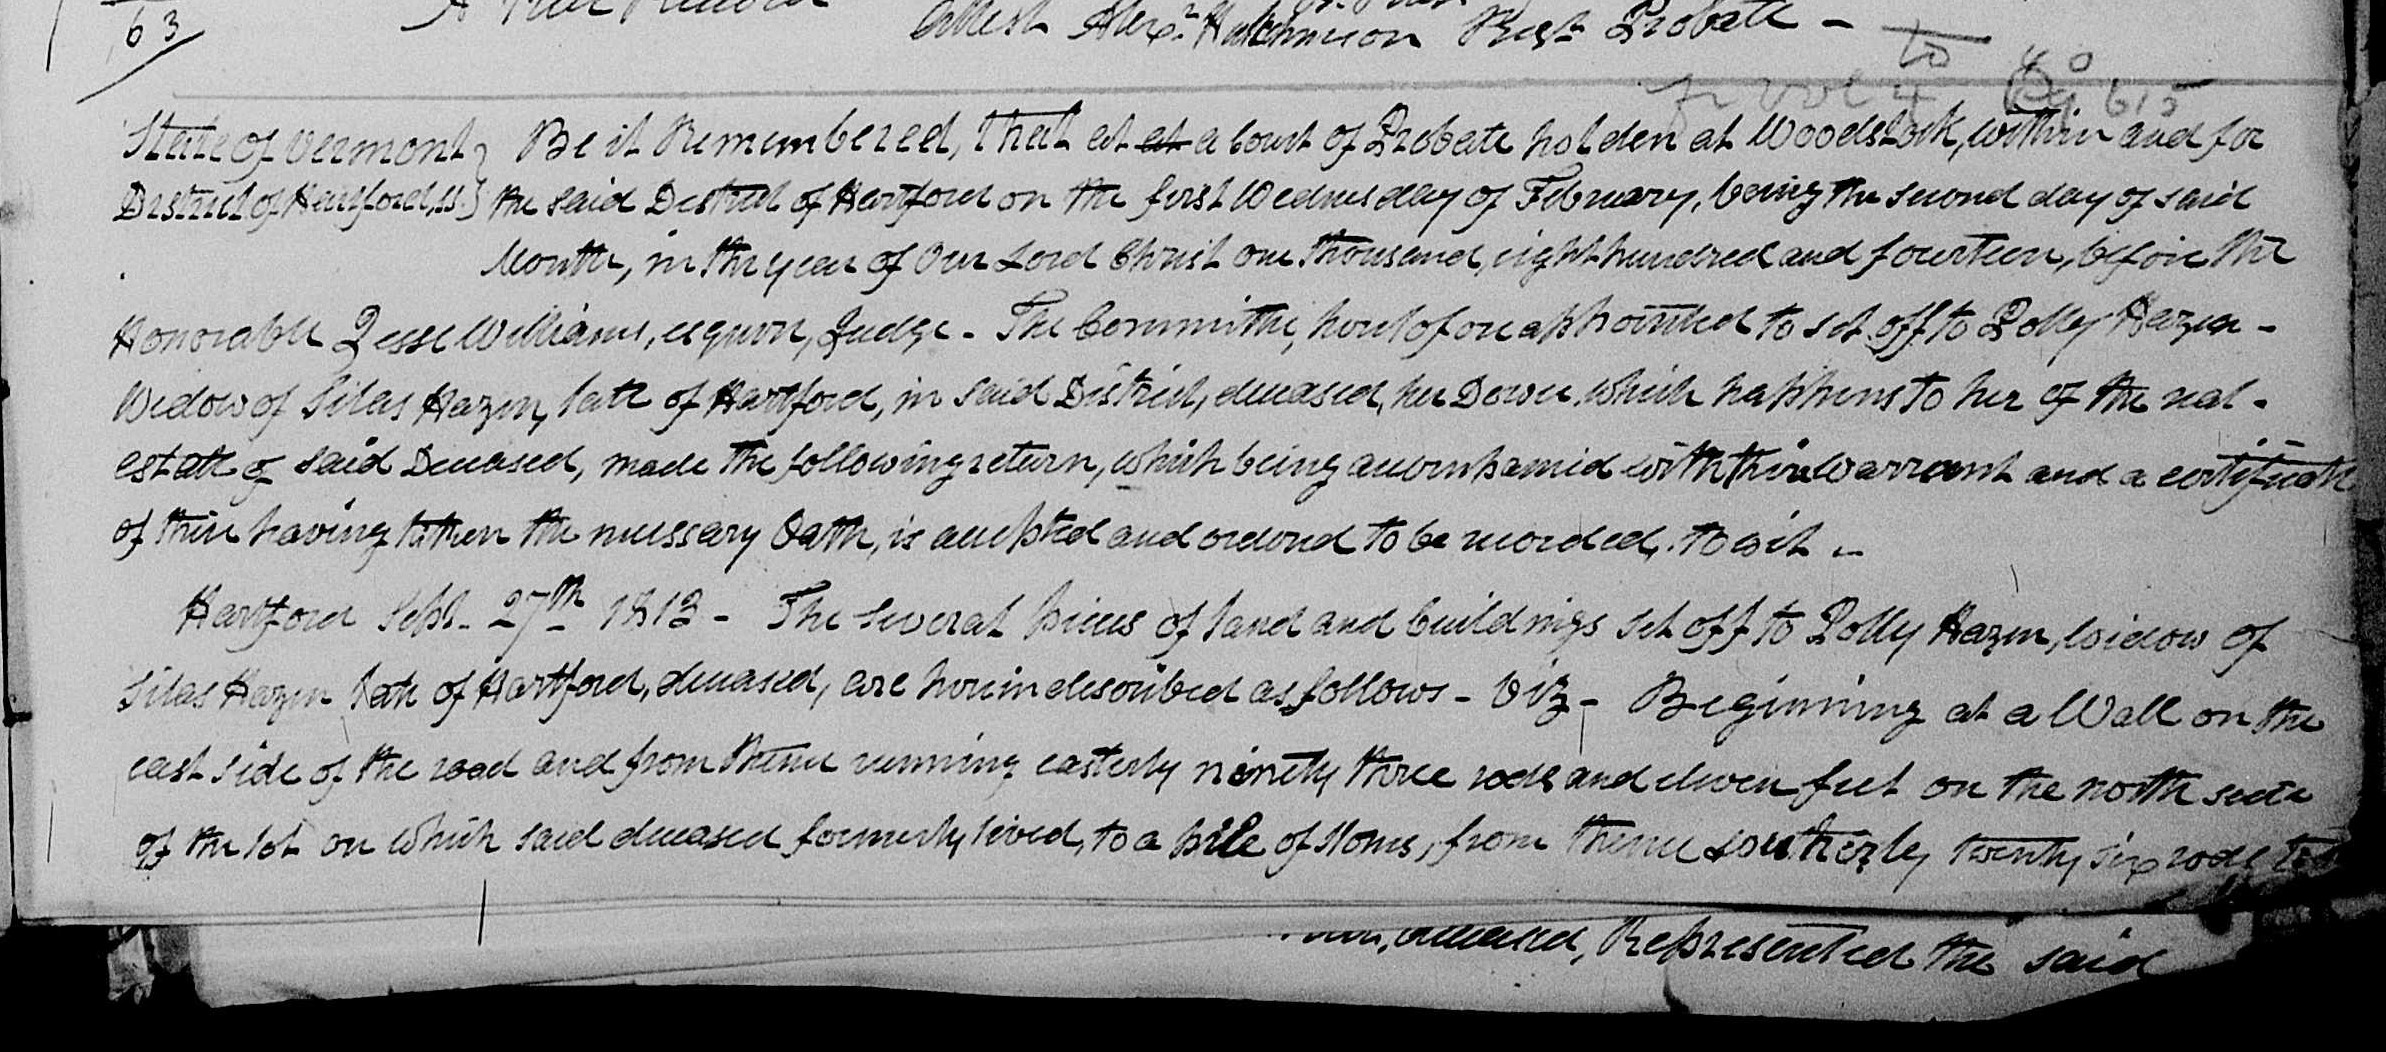 63
A True Record
Attest Alexr. Hutchinson Regr. Probate -
fr vol 4 Pg 615
State of Vermont } Be it Remembered, that at at a Court of Probate holden at Woodstock, within and for
District of Hartford, ss. } the said District of Hartford on the first Wednesday of February, being the second day of said
Month, in the year of Our Lord Christ one thousand, eight hundred and fourteen, before the
Honorable Jesse Williams, esquire, Judge - The Committee, heretofore appointed to set off to Polly Hazen -
Widow of Silas Hazen, late of Hartford, in said District, deceased, her Dower which happens to her of the real -
estate of said Deceased, made the following return, which being accompanied with their Warrant and a certificate
of their having taken the necessary Oath, is accepted and ordered to be recorded, to wit -
Hartford Sept. 27th 1813 - The several pieces of land and buildings set off to Polly Hazen, widow of
Silas Hazen late of Hartford, deceased, are herein described as follows - Viz - Beginning at a Wall on the
east side of the road and from thence running easterly ninety three rods and eleven feet on the north side
of the lot on which said deceased formerly lived, to a pile of stones, from thence southerly twenty six rods
deceased, Represented the said